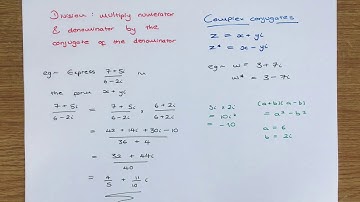 Division: multiply numerator
& denominator by the
conjugate of the denominator
eg~ Express 7+5i/6-2i in
the form x+yi
7+5i/6-2i = 7+5i/6-2i × 6+2i/6+2i
= 42+14i+30i-10/36+4
= 32+44i/40
= 4/5 + 11/10 i
Complex conjugates
z = x+yi
z* = x-yi
eg~ w = 3+7i
w* = 3-7i
5i×2i
= 10i²
= -10
(a+b)(a-b)
= a²-b²
a = 6
b = 2i